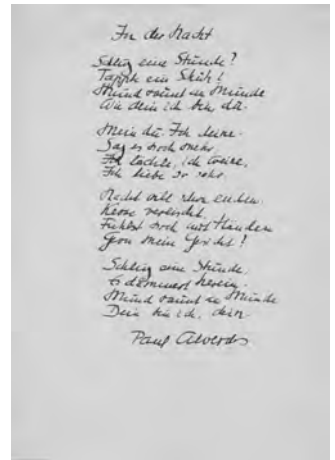 In der Nacht
Schlug eine Stunde?
Tappte ein Schuh?
Mund raunt an Munde
Wie dein ich bin, du.
Mein du. Ich deine.
Sag es noch mehr.
Ich lachte, ich weine,
Ich liebe so sehr.
Nacht will
Kerze verlischt.
Fühlst noch mit Händen
mein Gesicht!
Schlug eine Stunde,
Es dämmert herein.
Mund raunt an Munde
Dein bin ich, dein.
Paul Alverdes